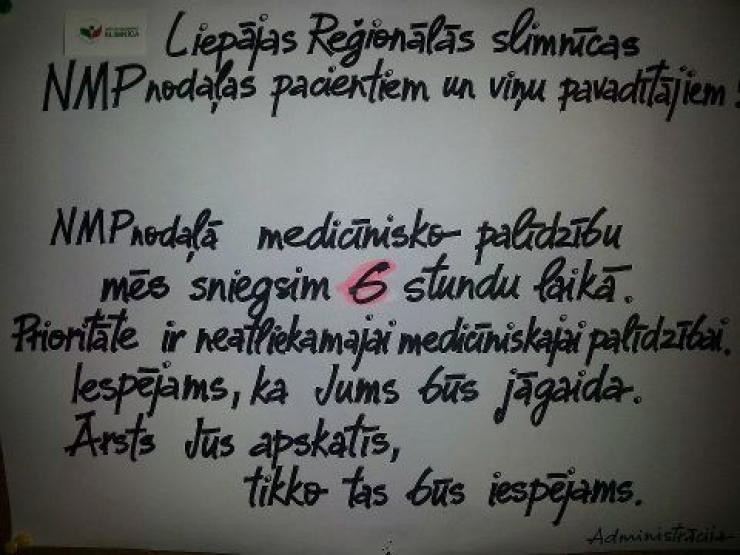 SLIMNĪCA
Liepājas Reģionālās slimnīcas
NMP nodaļas pacientiem un viņu pavadītājiem!
NMP nodaļā medicīnisko palīdzību
mēs sniegsim 6 stundu laikā.
Prioritāte ir neatliekamajai medicīniskajai palīdzībai.
Iespējams, ka Jums būs jāgaida.
Ārsts Jūs apskatīs,
tikko tas būs iespējams.
Administrācija